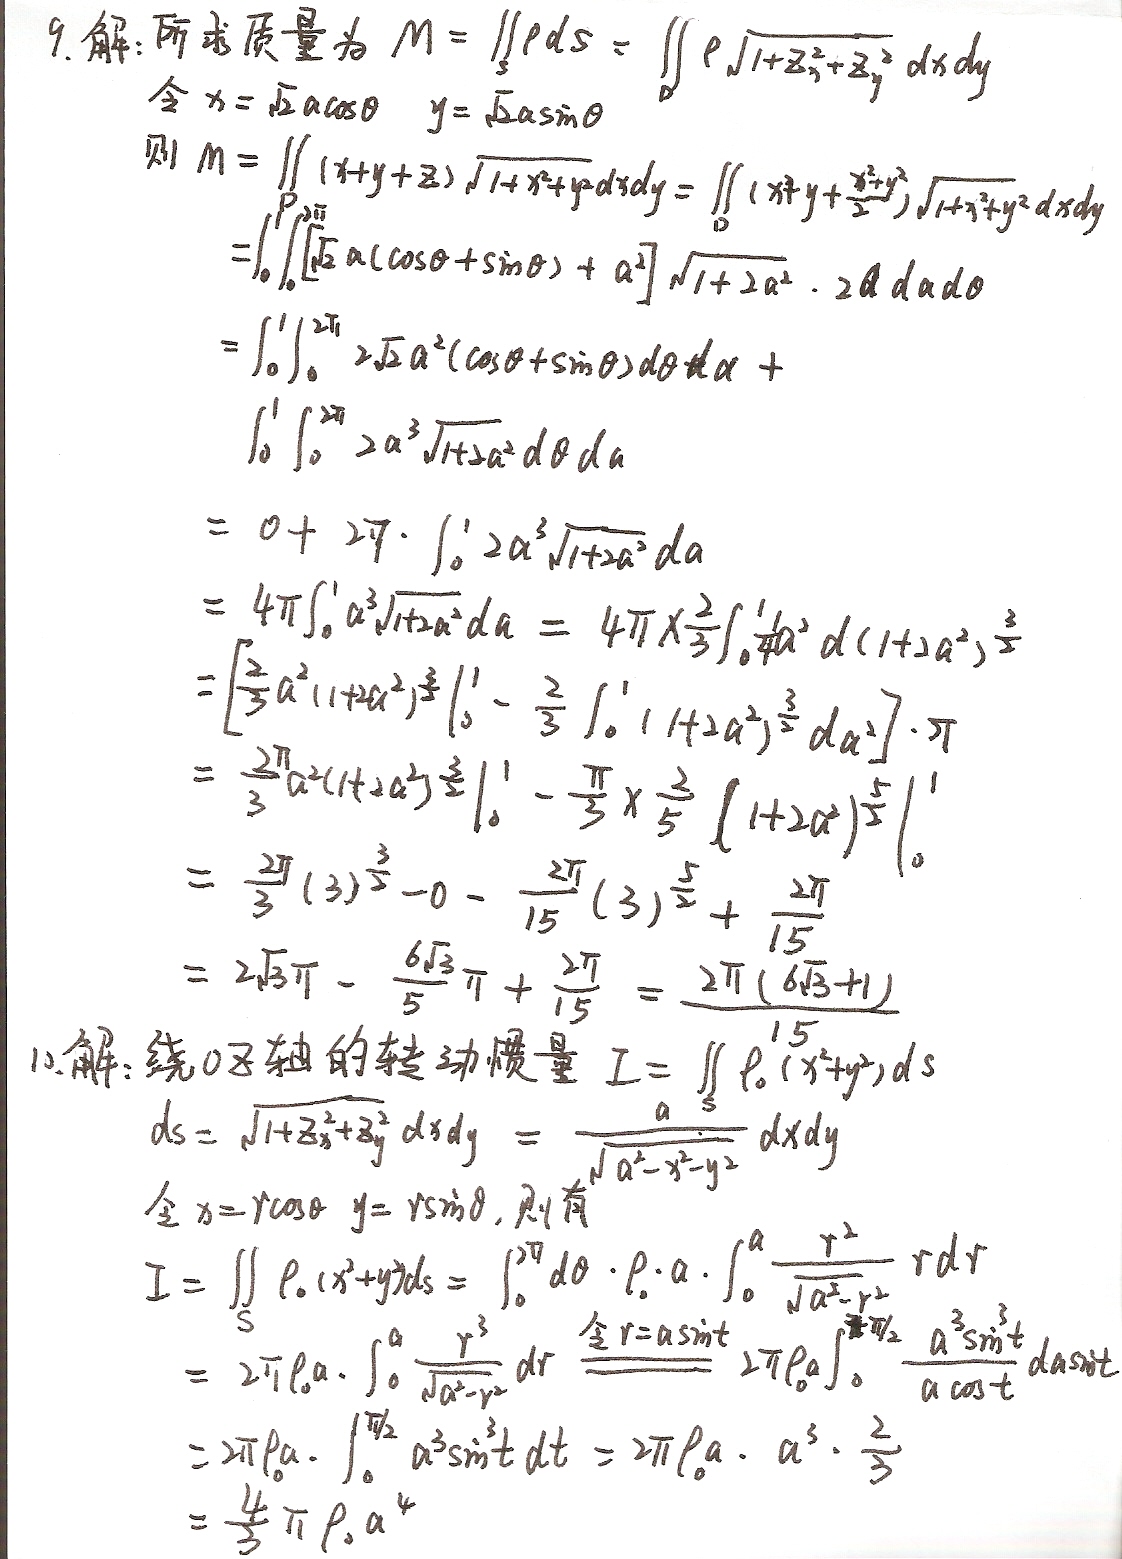 9. 解: 所求质量为 M = ∬_S ρds = ∬_D ρ√(1+z_x²+z_y²) dxdy
令 x = √2 a cosθ y = √2 a sinθ
则 M = ∬_D (x+y+z) √(1+x²+y²) dxdy = ∬_D (x+y+(x²+y²)/2) √(1+x²+y²) dxdy
= ∫₀¹∫₀^{2π} [√2 a(cosθ+sinθ) + a²] √(1+2a²) · 2a da dθ
= ∫₀¹∫₀^{2π} 2√2 a²(cosθ+sinθ) dθ da +
∫₀¹ ∫₀^{2π} 2a³ √(1+2a²) dθ da
= 0 + 2π · ∫₀¹ 2a³ √(1+2a²) da
= 4π∫₀¹ a³√(1+2a²) da = 4π × 2/3 ∫₀¹ 1/4 a² d(1+2a²)^{3/2}
= [2/3 a²(1+2a²)^{3/2} |₀¹ - 2/3 ∫₀¹ (1+2a²)^{3/2} da²] · π
= 2π/3 a²(1+2a²)^{3/2} |₀¹ - π/3 × 2/5 (1+2a²)^{5/2} |₀¹
= 2π/3 (3)^{3/2} - 0 - 2π/15 (3)^{5/2} + 2π/15
= 2√3π - 6√3/5 π + 2π/15 = 2π(6√3+1)/15
10. 解: 绕OZ轴的转动惯量 I = ∬_S ρ₀(x²+y²)ds
ds = √(1+z_x²+z_y²) dxdy = a/√(a²-x²-y²) dxdy
令 x = rcosθ y = rsinθ, 则有
I = ∬_S ρ₀(x²+y²)ds = ∫₀^{2π} dθ · ρ₀ · a · ∫₀^a r²/√(a²-r²) rdr
= 2πρ₀a · ∫₀^a r³/√(a²-r²) dr 令r=asint = 2πρ₀a ∫₀^{π/2} a³sin³t/(a cos t) dasint
= 2πρ₀a · ∫₀^{π/2} a³sin³t dt = 2πρ₀a · a³ · 2/3
= 4/3 π ρ₀ a⁴